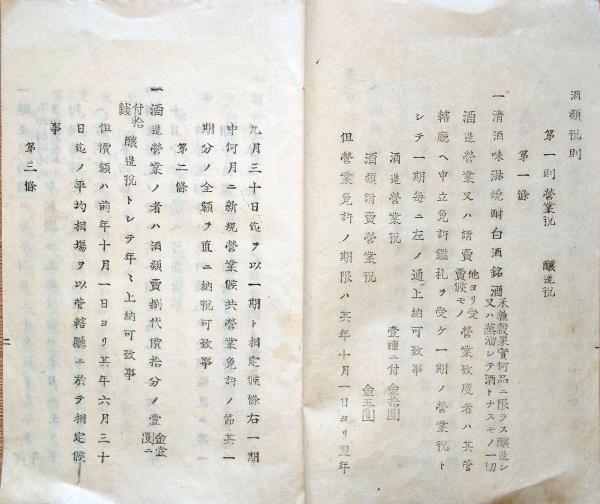 酒類税則
第一則 營業税 釀造税
第一條
一清酒味淋燒酎白酒銘酒米雜穀果實何品ニ限ラス釀造シ又ハ蒸溜シテ酒トナスモノ一切
酒造營業又ハ請賣他ヨリ受賣候モノ營業致度者ハ其管
轄廳ヘ申立免許鑑札ヲ受ケ一期ノ營業税ト
シテ一期毎ニ左ノ通上納可致事
酒造營業税 壹種ニ付金拾圓
酒類請賣營業税 金五圓
但營業免許ノ期限ハ其年十月一日ヨリ翌年
九月三十日迄ヲ以一期ト相定候條右一期
中何月ニ新規營業候共營業免許ノ節其一
期分ノ金額ヲ直ニ納税可致事
第二條
一酒造營業ノ者ハ酒類賣捌代價拾分ノ壹金壹圓ニ
付拾錢釀造税トシテ年々上納可致事
但價額ハ前年十月一日ヨリ其年六月三十
日迄ノ平均相場ヲ以管轄廳ニ於テ相定候
事
第三條
二